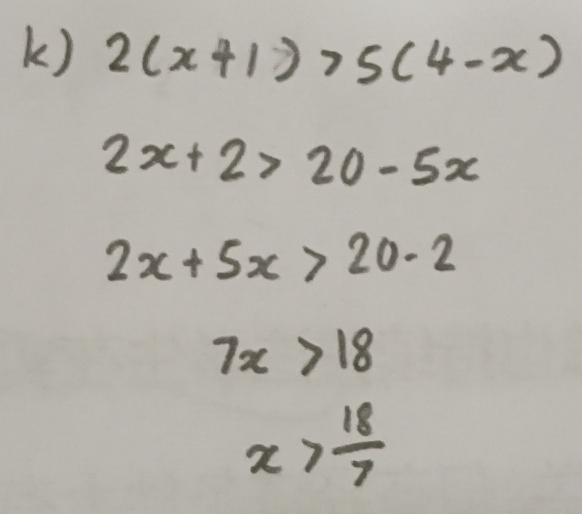 k) 2(x+1) > 5(4-x)
2x+2 > 20-5x
2x+5x > 20-2
7x > 18
x > 18/7